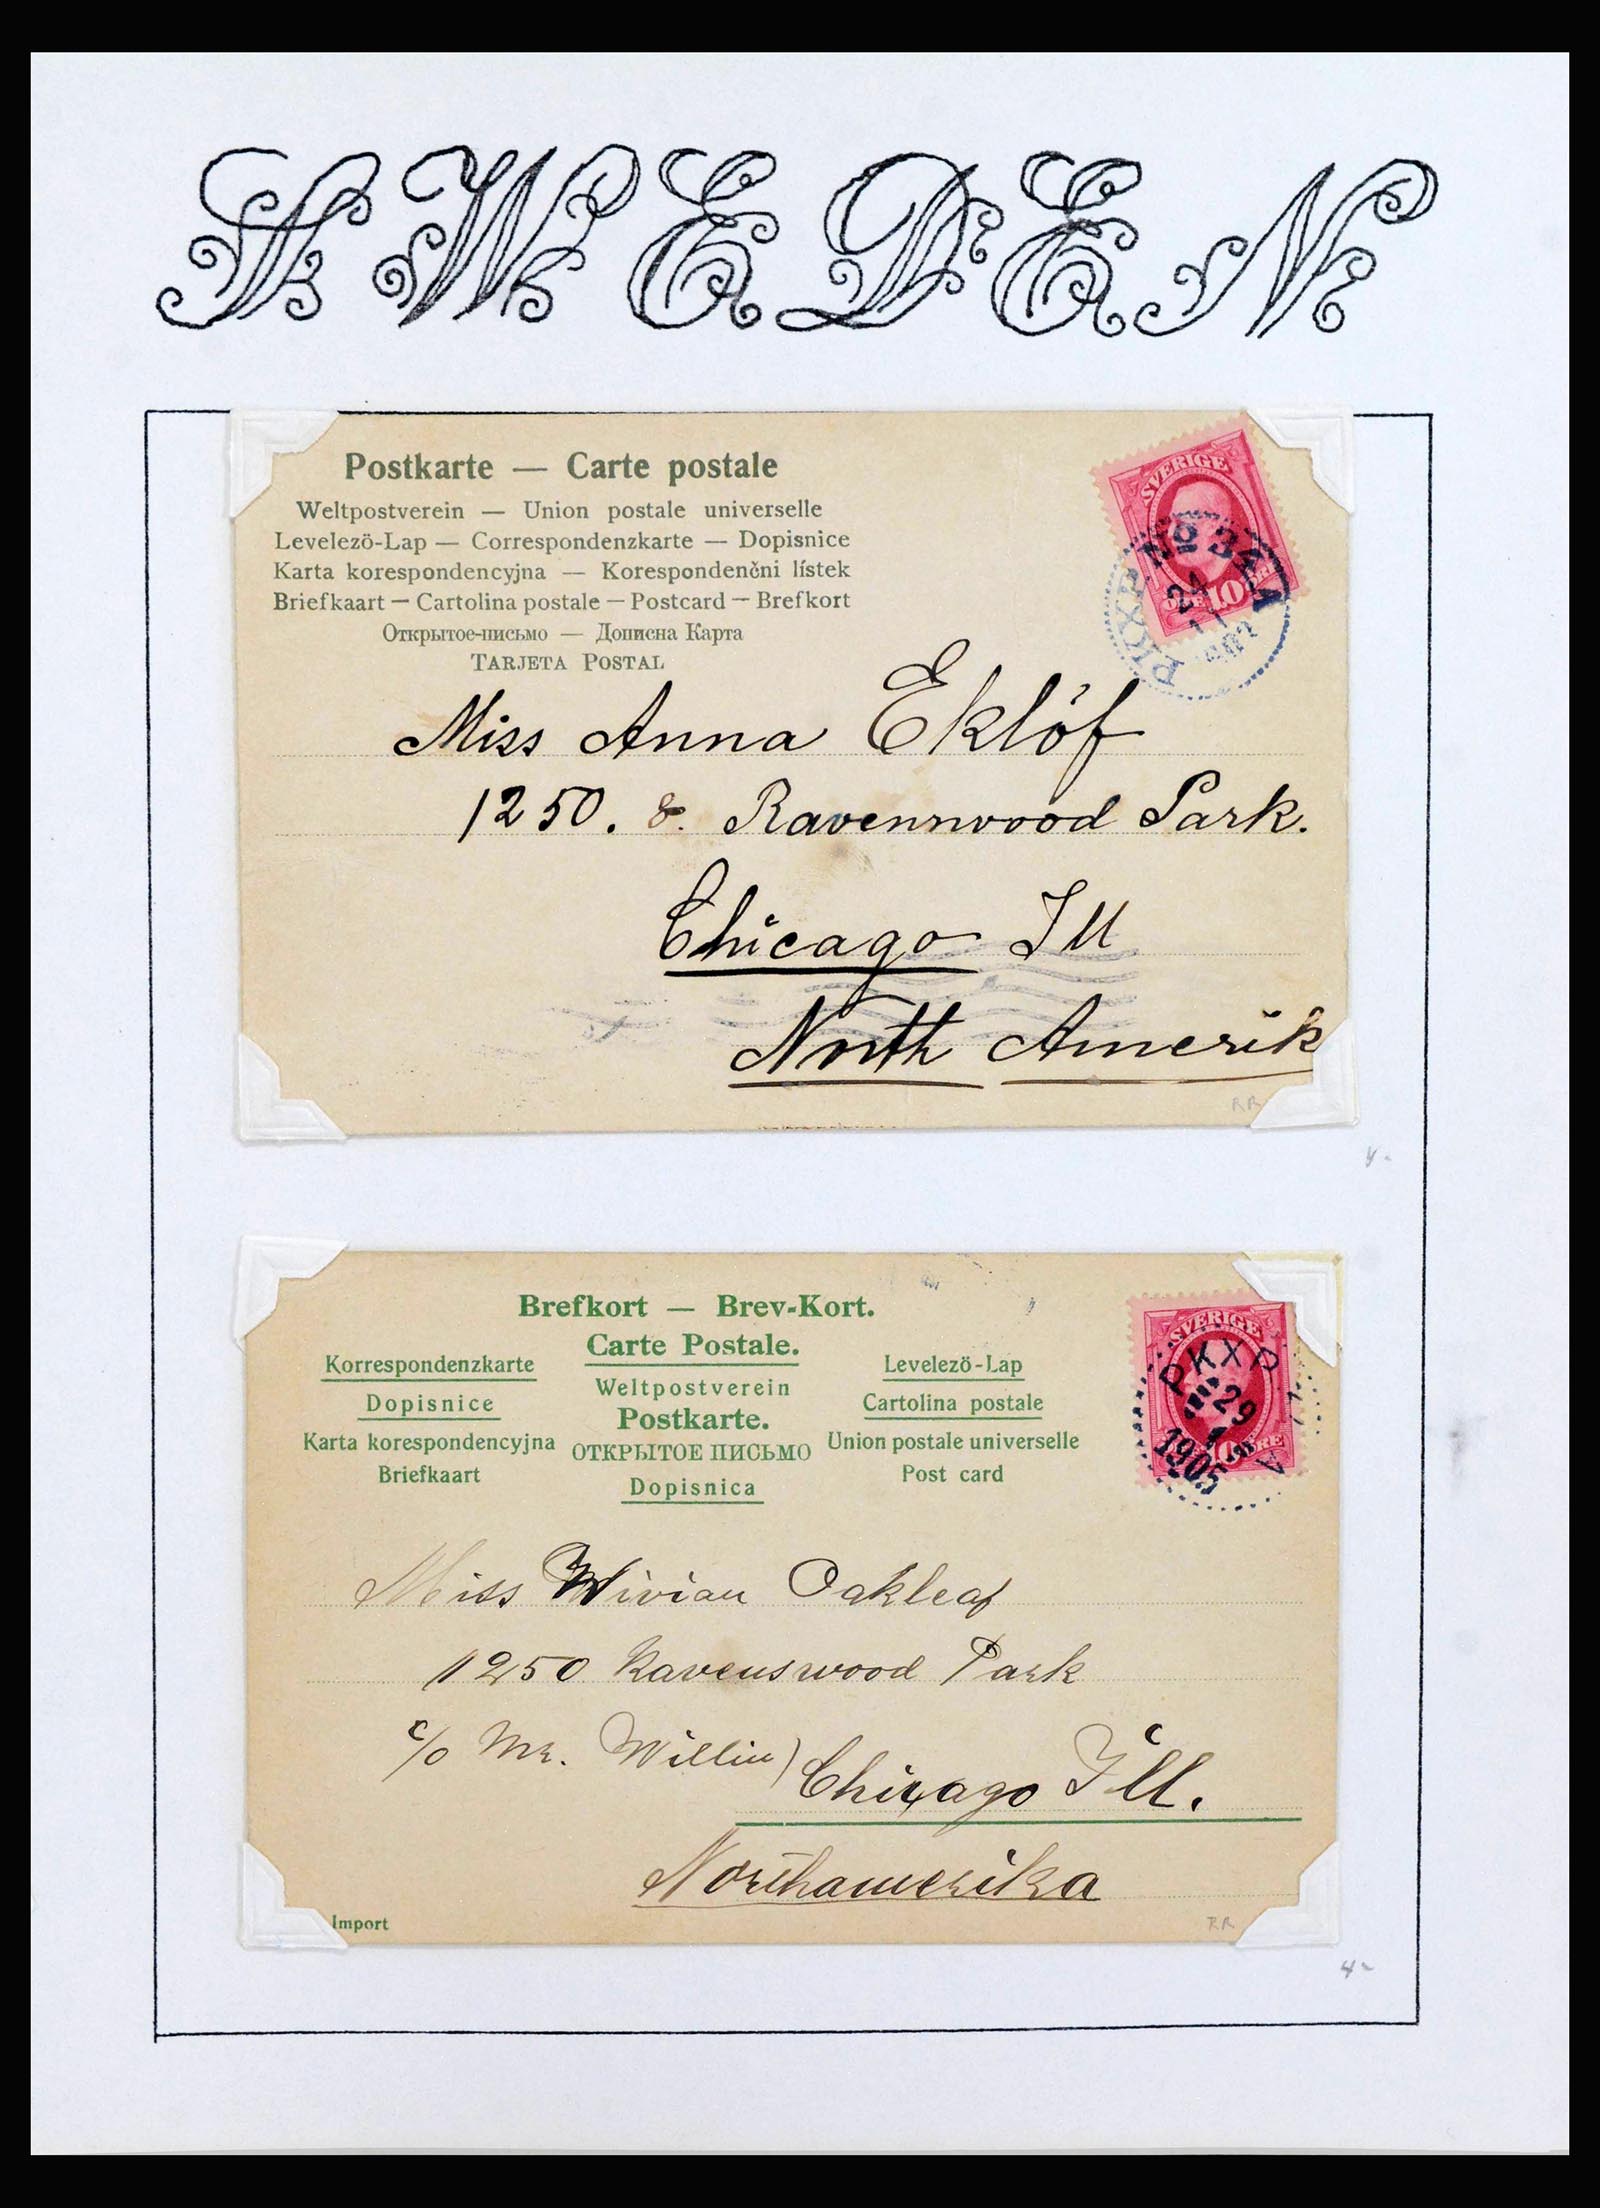 SWEDEN
Postkarte — Carte postale
Weltpostverein — Union postale universelle
Levelező-Lap — Correspondenzkarte — Dopisnice
Karta korespondencyjna — Korespondenčni lístek
Briefkaart — Cartolina postale — Postcard — Brefkort
Открытое-письмо — Дописна Карта
TARJETA POSTAL
SVERIGE
10
ÖRE
PKXP No 3
24
Miss Anna Eklöf
1250. 8. Ravennwood Park.
Chicago Ill
North Amerik
RR
4-
Brefkort — Brev-Kort.
Carte Postale.
Korrespondenzkarte
Levelező-Lap
Weltpostverein
Dopisnice
Cartolina postale
Postkarte.
Karta korespondencyjna
ОТКРЫТОЕ ПИСЬМО
Union postale universelle
Briefkaart
Post card
Dopisnica
SVERIGE
10 ÖRE
PKXP
29
1
1905
A
Miss Wivian Oakleaf
1250 Ravenswood Park
c/o Mr. Willin)
Chicago Ill.
Northamerika
Import
RR
4-